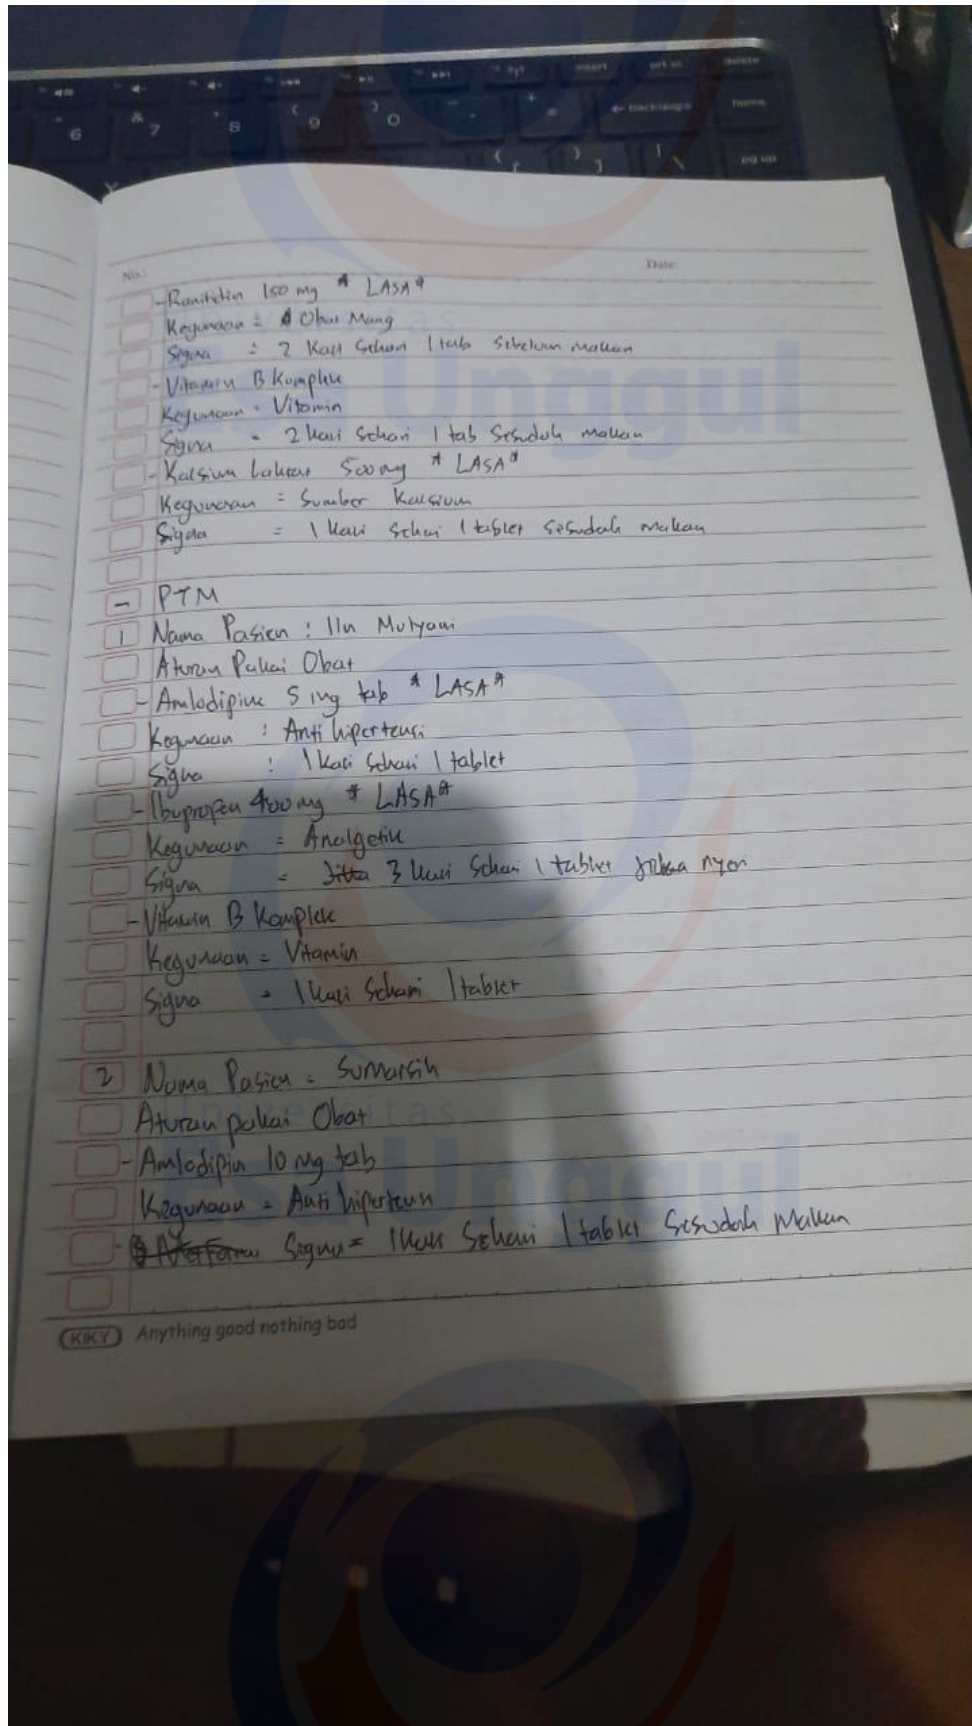 No.:
Date:
- Ranitidin 150 mg * LASA *
Kegunaan = Obat Maag
Signa : 2 Kali Sehari 1 tab Sebelum makan
- Vitamin B Kompleks
Kegunaan = Vitamin
Signa = 2 kali Sehari 1 tab Sesudah makan
- Kalsium Laktat 500 mg * LASA *
Kegunaan = Sumber Kalsium
Signa = 1 Kali Sehari 1 tablet sesudah makan
- PTM
1 Nama Pasien : Iin Mulyani
Aturan Pakai Obat
- Amlodipine 5 mg tab * LASA *
Kegunaan : Anti hipertensi
Signa : 1 Kali Sehari 1 tablet
- Ibuprofen 400 mg * LASA *
Kegunaan = Analgetik
Signa = 3 kali Sehari 1 tablet jika nyeri
- Vitamin B Komplek
Kegunaan = Vitamin
Signa = 1 Kali Sehari 1 tablet
2 Nama Pasien = Sumarsih
Aturan pakai Obat
- Amlodipin 10 mg tab
Kegunaan = Anti hipertensi
- Signa = 1 Kali Sehari 1 tablet Sesudah Makan
KIKY Anything good nothing bad
Universitas
Esa Unggul
Universitas
Esa Unggul